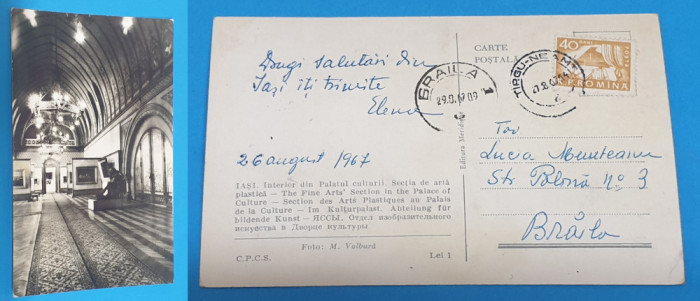 Dragi salutări din
Iași îți trimite
Elena
26 august 1967
IAȘI. Interior din Palatul culturii. Secția de artă
plastică — The Fine Arts' Section in the Palace of
Culture — Section des Arts Plastiques au Palais
de la Culture — Im Kulturpalast. Abteilung für
bildende Kunst — ЯССЫ. Отдел изобразительного
искусства в Дворце культуры
Foto: M. Volbură
C.P.C.S.
Lei 1
Editura Meridiane
CARTE
POȘTALĂ
BRAILA
29.8.67.09
1
TIRGU-NEAMȚ
40
R.P.ROMINA
Tov
Lucia Munteanu
Str Polonă nº 3
Brăila